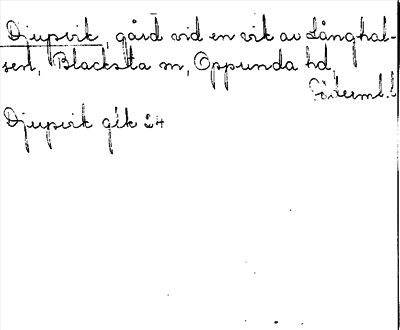 Djupvik, gård vid en vik av Långhal-
sen, Blacksta sn, Oppunda hd,
Söderml.
Djupvik gék 24